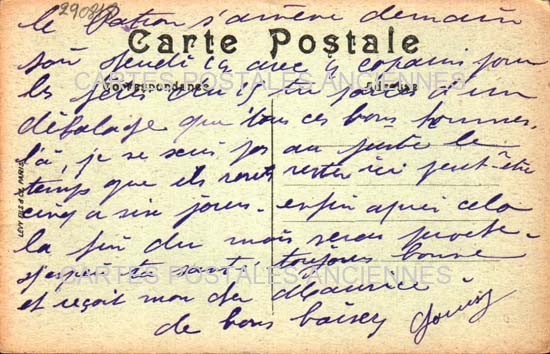 290819
le Patron s'amène demain
Carte Postale
soir Jeudi avec 4 copains pour
CARTES POSTALES ANCIENNES
les fêtes du 15 tu parles d'un
Correspondance
Adresse
débalage que tous ces bons hommes
là, je se suis pas au juste le
temps que ils vont rester ici peut-être
LEVY FILS & Cie PARIS
cinq a six jours - enfin après cela
la fin du mois sera proche -
j'espère ta santé toujours bonne
CARTES POSTALES ANCIENNES
et reçoit mon cher Maurice
de bons baisers